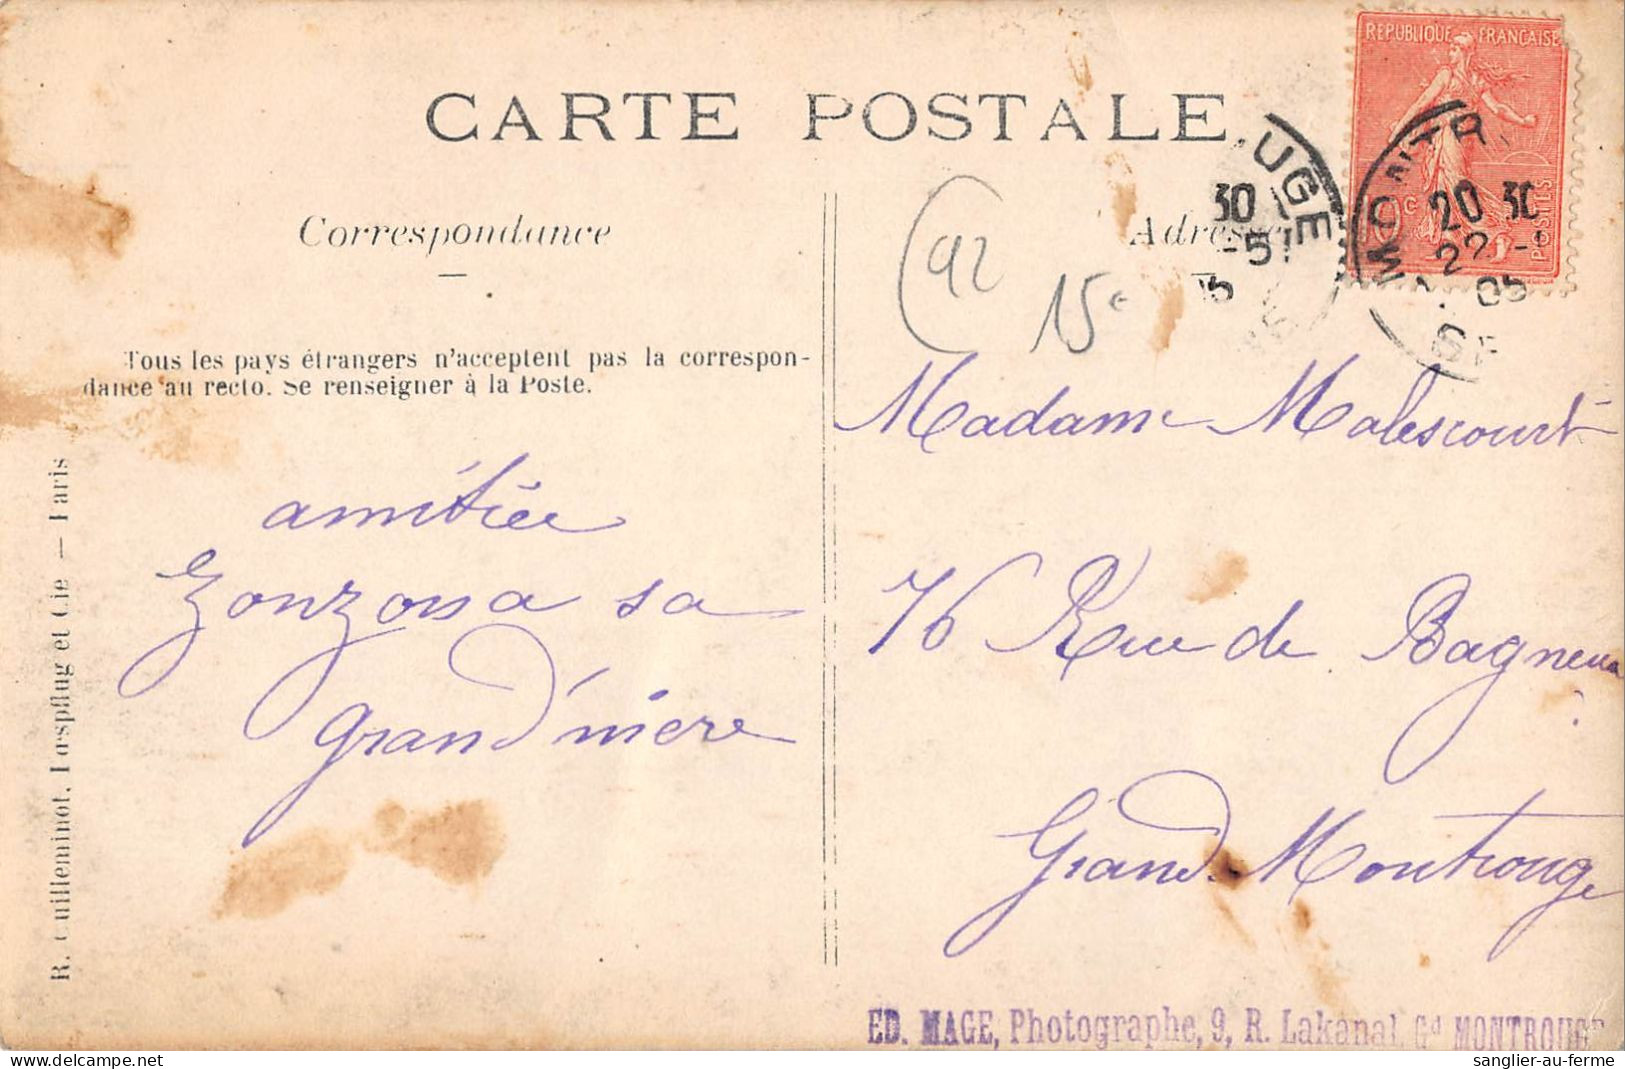 REPUBLIQUE FRANÇAISE
POSTES
CARTE POSTALE
MONTR
20 30
22 -
05
SE
UGE
30
-5
Correspondance
Adresse
(92
15€
Tous les pays étrangers n'acceptent pas la correspon-
dance au recto. Se renseigner à la Poste.
amitiée
sa
grand'mère
Madame Malescourt
76 Rue de Bagneux
Grand-Montrouge
R. Guilleminot, Bœspflug et Cie — Paris
ED. MAGE, Photographe, 9, R. Lakanal, Gd MONTROUGE
sanglier-au-ferme